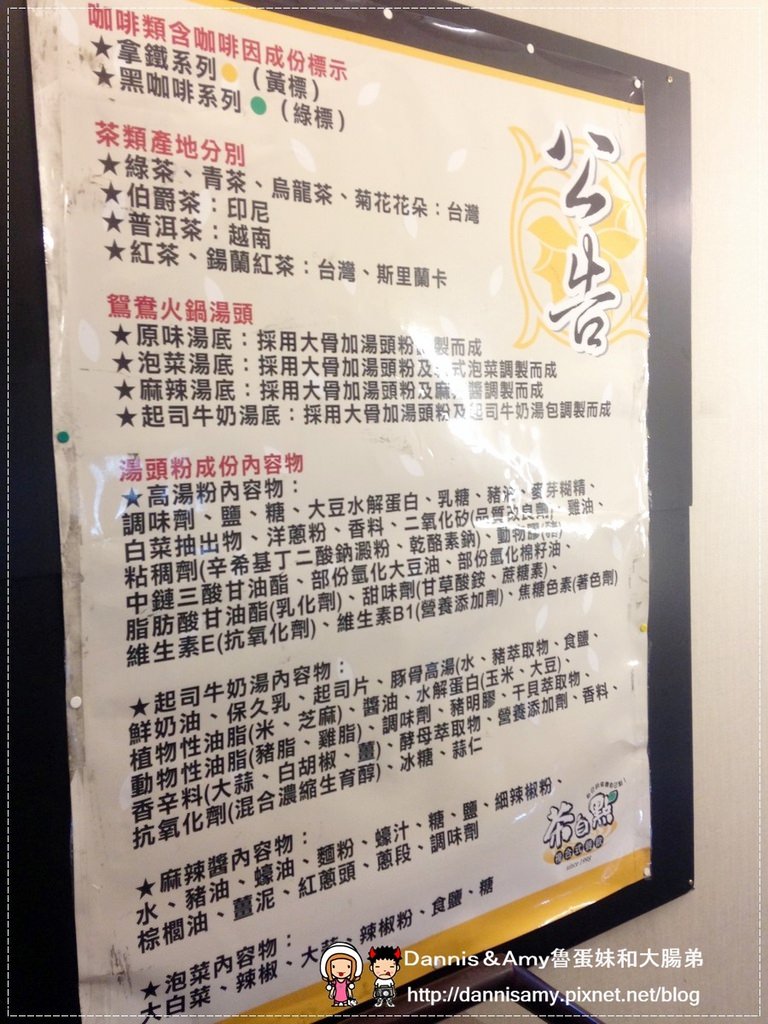 公告
咖啡類含咖啡因成份標示
★拿鐵系列●(黃標)
★黑咖啡系列●(綠標)
茶類產地分別
★綠茶、青茶、烏龍茶、菊花花朵:台灣
★伯爵茶:印尼
★普洱茶:越南
★紅茶、錫蘭紅茶:台灣、斯里蘭卡
鴛鴦火鍋湯頭
★原味湯底:採用大骨加湯頭粉 製而成
★泡菜湯底:採用大骨加湯頭粉及 式泡菜調製而成
★麻辣湯底:採用大骨加湯頭粉及麻 醬調製而成
★起司牛奶湯底:採用大骨加湯頭粉及起司牛奶湯包調製而成
湯頭粉成份內容物
★高湯粉內容物:
調味劑、鹽、糖、大豆水解蛋白、乳糖、豬油、麥芽糊精、
白菜抽出物、洋蔥粉、香料、二氧化矽(品質改良劑)、雞油、
粘稠劑(辛希基丁二酸鈉澱粉、乾酪素鈉)、動物膠(豬)
中鏈三酸甘油酯、部份氫化大豆油、部份氫化棉籽油、
脂肪酸甘油酯(乳化劑)、甜味劑(甘草酸銨、蔗糖素)、
維生素E(抗氧化劑)、維生素B1(營養添加劑)、焦糖色素(著色劑)
★起司牛奶湯內容物:
鮮奶油、保久乳、起司片、豚骨高湯(水、豬萃取物、食鹽、
植物性油脂(米、芝麻)、醬油、水解蛋白(玉米、大豆)、
動物性油脂(豬脂、雞脂)、調味劑、豬明膠、干貝萃取物、
香辛料(大蒜、白胡椒、薑)、酵母萃取物、營養添加劑、香料、
抗氧化劑(混合濃縮生育醇)、冰糖、蒜仁
★麻辣醬內容物:
水、豬油、蠔油、麵粉、蠔汁、糖、鹽、細辣椒粉、
棕櫚油、薑泥、紅蔥頭、蔥段、調味劑
★泡菜內容物:
大白菜、辣椒、大蒜、辣椒粉、食鹽、糖
茶自點
複合式餐飲
since 1998
Dannis＆Amy魯蛋妹和大腸弟
http://dannisamy.pixnet.net/blog